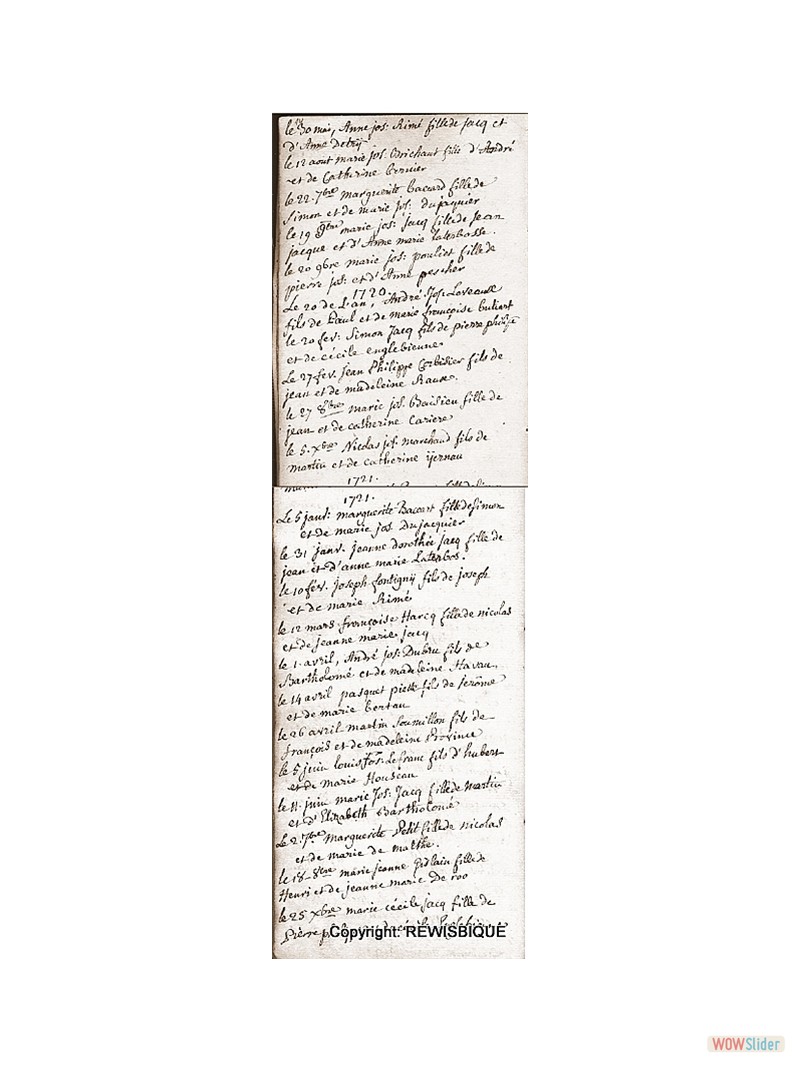 le 30 mai, Anne jos: Rimé fille de jacq et
d'Anne Detry
le 12 aout marie jos. Brichant fille d'André
et de Catherine Bernier
le 22. 7bre marguerite Baccard fille de
Simon et de marie jos: dujaquier
le 19 9bre marie jos: jacq fille de jean
jacque et d'Anne marie Laterbasse.
le 20 9bre marie jos: pouliet fille de
pierre jos: et d'Anne pescher
1720.
Le 20 de L'an, André Jos: Loveaux
fils de Paul et de marie françoise buliant
le 20 fev: Simon Jacq fils de pierre
et de cécile englebienne
Le 27 fev. jean Philippe Corbisier fils de
jean et de madeleine Raux.
le 27 8bre marie jos. Baisieu fille de
jean et de catherine Cariere
le 5. xbre Nicolas jos. marchand fils de
martin et de catherine ÿernau
1721.
1721.
Le 5 janv: marguerite Baccart fille de simon
et de marie jos. Dujacquier
le 31 janv. jeanne dorothée jacq fille de
jean et d'anne marie Laterbos.
le 10 fév. joseph fontigny fils de joseph
et de marie Rimé
le 12 mars françoise Harcq fille de nicolas
et de jeanne marie jacq
le 1 avril, André jos: Dubru fils de
Bartholomé et de madeleine Havau.
le 14 avril pasquet piette fils de jerôme
et de marie bertau
le 26 avril martin soumillon fils de
françois et de madeleine Province
le 5 juin louis Jos: Lefranc fils d'hubert
et de Marie Houseau
le 11 juin marie Jos: Jacq fille de martin
et d'Elizabeth Bartholomé
Le 2. 7bre Marguerite Petit fille de nicolas
et de marie de malthe.
le 18 8bre marie jeanne Gislain fille de
Henri et de jeanne marie De roo
le 25 xbre marie cécile jacq fille de
Pierre
Copyright: REWISBIQUE
WOWSlider